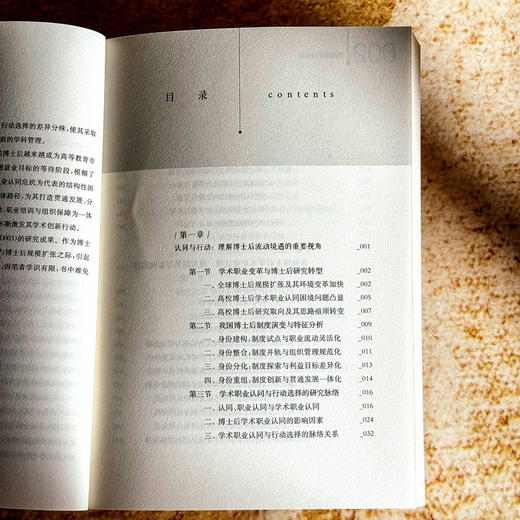 行动选择的差异分殊，使其采取
面的学科管理。
博士后越来越成为高等教育市
就业目标的等待阶段，模糊了
业认同危机为代表的结构性困
体路径，为其打造贯通发展、分
职业培训与组织保障为一体
不断激发其学术创新行动。
D003)的研究成果。作为博士
与规模扩张之际，引起
因笔者学识有限，书中难免
目 录
contents
/ 第一章 /
认同与行动：理解博士后流动境遇的重要视角 _001
第一节 学术职业变革与博士后研究转型 _002
一、全球博士后规模扩张及其环境变革加快 _002
二、高校博士后学术职业认同困境问题凸显 _005
三、高校博士后研究取向及其思路亟须转变 _007
第二节 我国博士后制度演变与特征分析 _009
一、身份建构：制度试点与职业流动灵活化 _010
二、身份整合：制度并轨与组织管理规范化 _011
三、身份分化：制度探索与利益目标差异化 _013
四、身份重组：制度创新与贯通发展一体化 _014
第三节 学术职业认同与行动选择的研究脉络 _016
一、认同、职业认同与学术职业认同 _016
二、博士后学术职业认同的影响因素 _024
三、学术职业认同与行动选择的脉络关系 _032